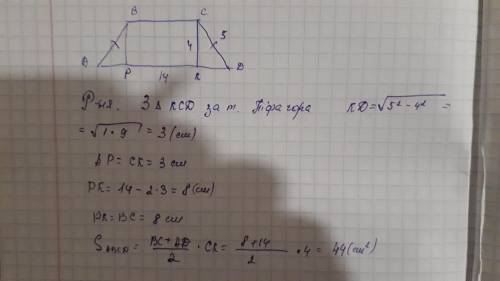 B C
4 5
A P 14 K D
Р-ня. З Δ KCD за т. Піфагора KD = √5² - 4² =
= √1 · 9 = 3 (см)
AP = CK = 3 см
PK = 14 - 2 · 3 = 8 (см)
PK = BC = 8 см
S ABCD = BC + AD / 2 · CK = 8 + 14 / 2 · 4 = 44 (см²)